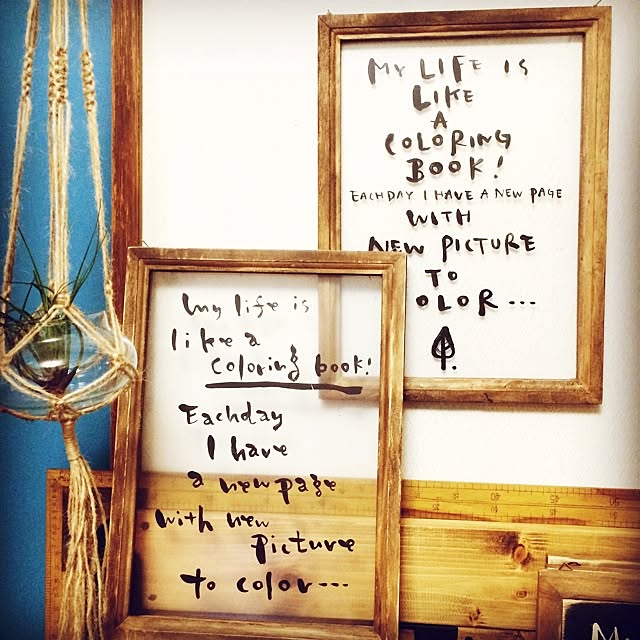 MY LIFE IS
LIKE
A
COLORING
BOOK!
EACHDAY I HAVE A NEW PAGE
WITH
NEW PICTURE
TO
OLOR...
my life is
like a
coloring book!
Eachday
I have
a new page
with new
picture
to color...
M